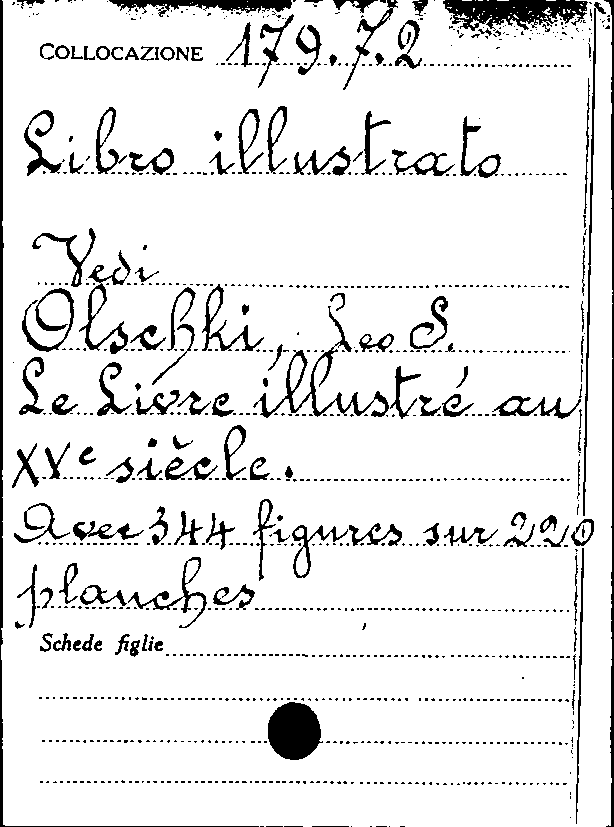 COLLOCAZIONE 179.7.2
Libro illustrato
Vedi
Olschki, Leo S.
Le Livre illustré au
XVe siècle.
Avec 344 figures sur 220
planches
Schede figlie